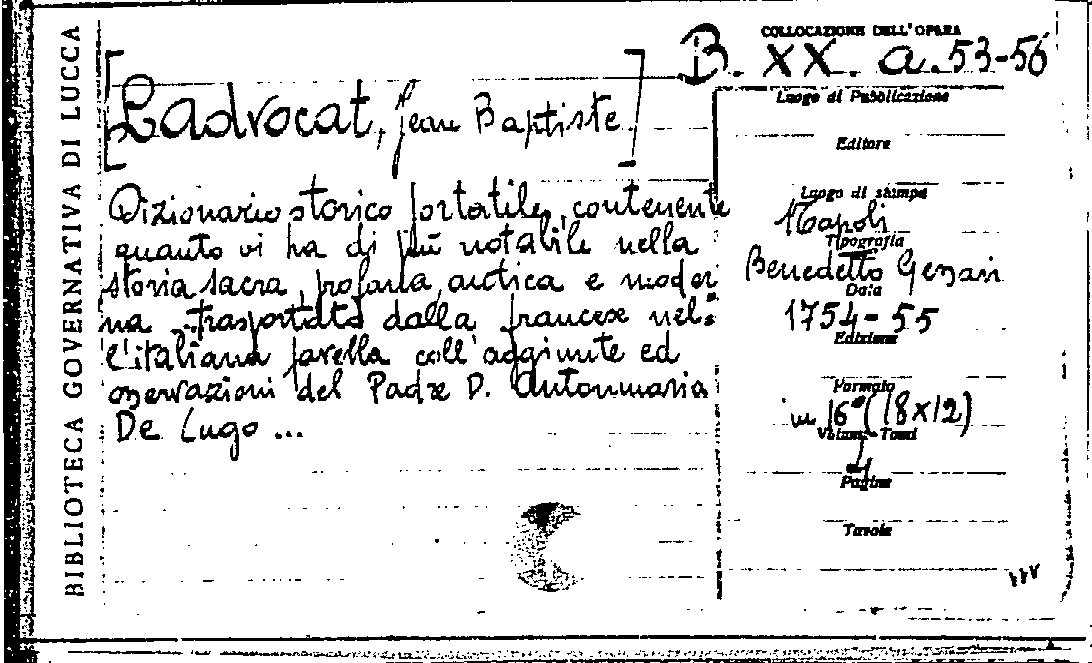 BIBLIOTECA GOVERNATIVA DI LUCCA
COLLOCAZIONE DELL'OPERA
B. XX. a. 53-56
[Ladvocat, Jean Baptiste]
Dizionario storico portatile, contenente
quanto vi ha di più notabile nella
storia sacra, profana, antica e moder
na, trasportato dalla francese nel=
l'italiana favella coll'aggiunte ed
osservazioni del Padre D. Antonmaria
De Lugo ...
Luogo di Pubblicazione
Editore
Luogo di stampa
Napoli
Tipografia
Benedetto Gessari
Data
1754-55
Edizione
Formato
in 16° (18x12)
Volumi-Tomi
4
Pagine
Tavole